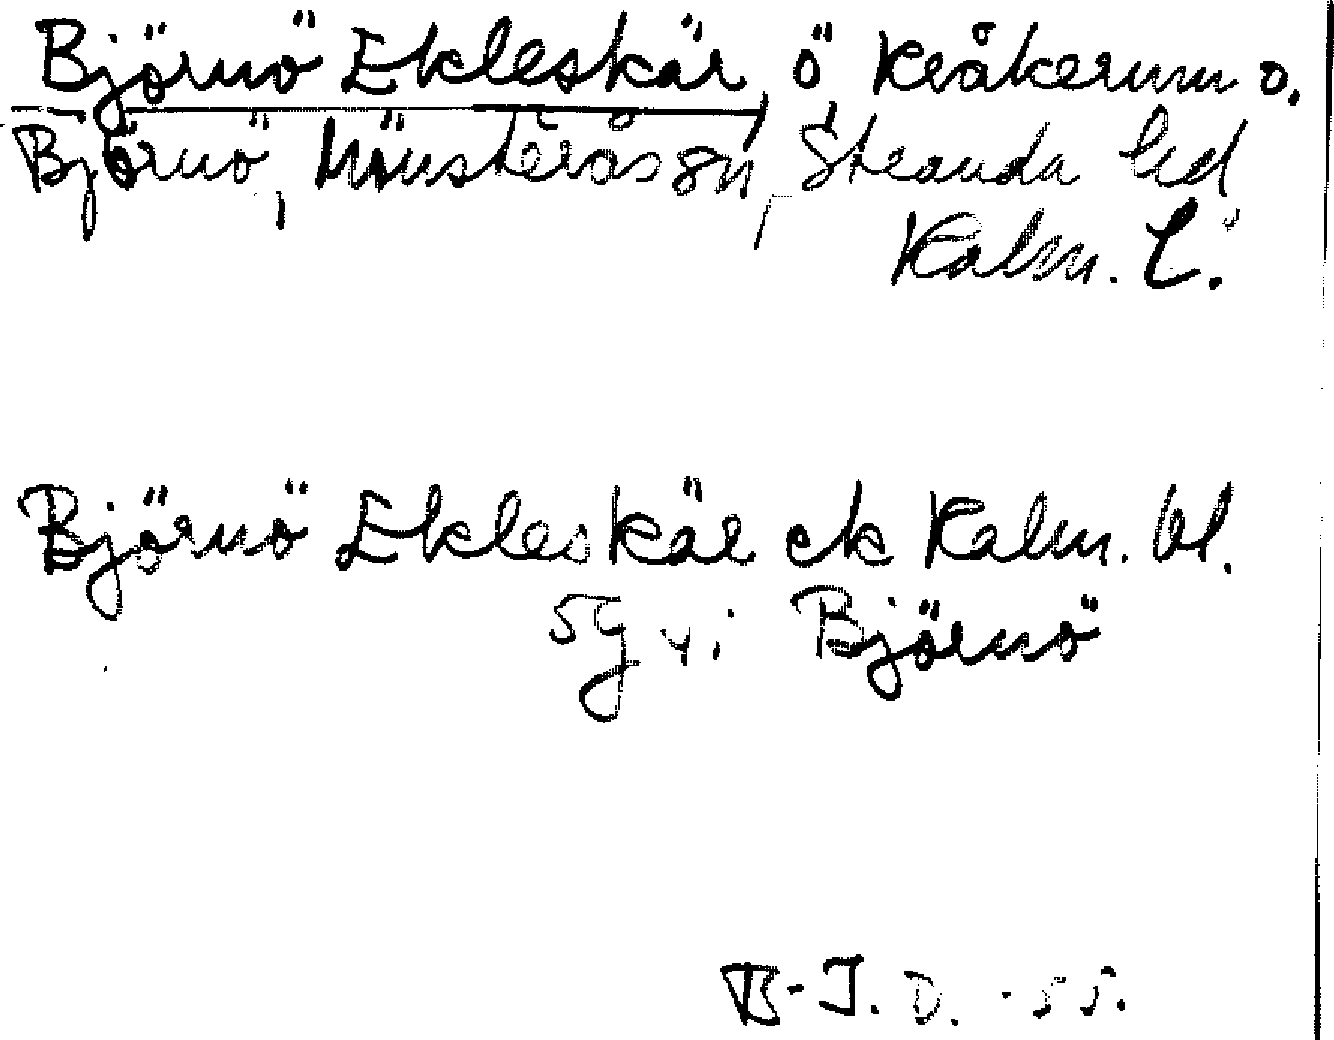 Björnö Ekleskär, ö, Kråkerum o.
Björnö, Mönsterås sn, Stranda hd
Kalm. L.
Björnö Ekleskär ek Kalm. bl.
5g v i Björnö
B-I. D. -55.